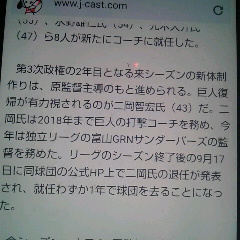 www.j-cast.com
(55)、水野雄仁氏(54)、元木大介氏
(47)ら8人が新たにコーチに就任した。
第3次政権の2年目となる来シーズンの新体制
作りは、原監督主導のもと進められる。巨人復
帰が有力視されるのが二岡智宏氏(43)だ。二
岡氏は2018年まで巨人の打撃コーチを務め、今
年は独立リーグの富山GRNサンダーバーズの監
督を務めた。リーグのシーズン終了後の9月17
日に同球団の公式HP上で二岡氏の退任が発表
され、就任わずか1年で球団を去ることになっ
た。